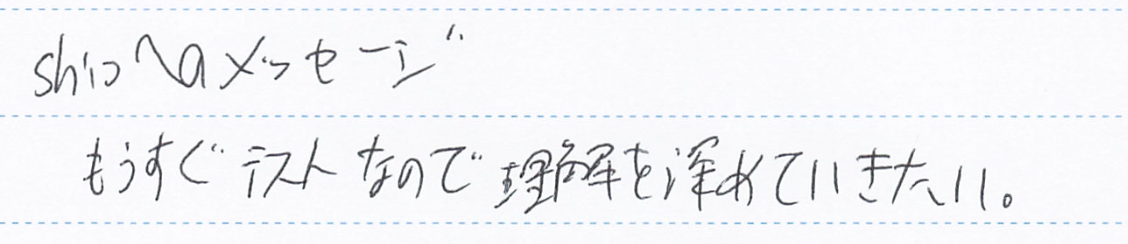 shioへのメッセージ
もうすぐテストなので理解を深めていきたい。